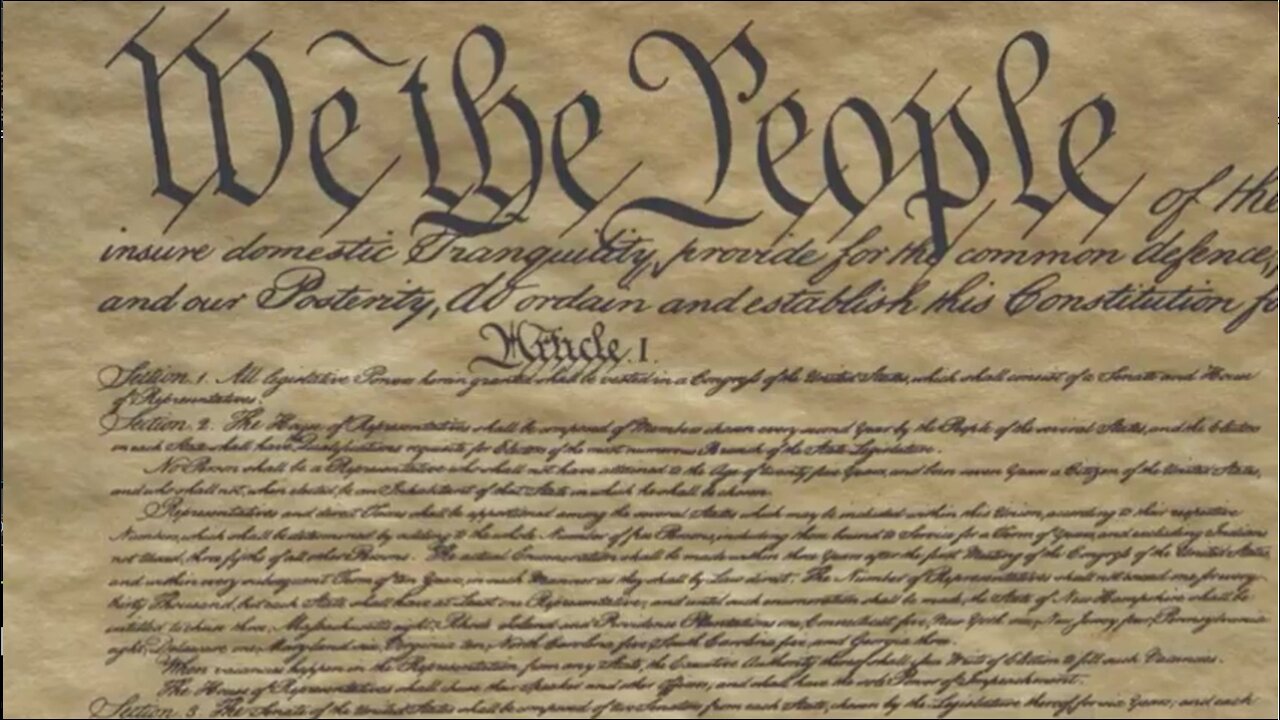 We the People of the
insure domestic Tranquility, provide for the common defence,
and our Posterity, do ordain and establish this Constitution fo
Article. I.
Section. 1. All legislative Powers herein granted shall be vested in a Congress of the United States, which shall consist of a Senate and House
of Representatives.
Section. 2. The House of Representatives shall be composed of Members chosen every second Year by the People of the several States, and the Electors
in each State shall have Qualifications requisite for Electors of the most numerous Branch of the State Legislature.
No Person shall be a Representative who shall not have attained to the Age of twenty five Years, and been seven Years a Citizen of the United States,
and who shall not, when elected, be an Inhabitant of that State in which he shall be chosen.
Representatives and direct Taxes shall be apportioned among the several States which may be included within this Union, according to their respective
Numbers, which shall be determined by adding to the whole Number of free Persons, including those bound to Service for a Term of Years, and excluding Indians
not taxed, three fifths of all other Persons. The actual Enumeration shall be made within three Years after the first Meeting of the Congress of the United States,
and within every subsequent Term of ten Years, in such Manner as they shall by Law direct. The Number of Representatives shall not exceed one for every
thirty Thousand, but each State shall have at Least one Representative; and until such enumeration shall be made, the State of New Hampshire shall be
entitled to chuse three, Massachusetts eight, Rhode Island and Providence Plantations one, Connecticut five, New York six, New Jersey four, Pennsylvania
eight, Delaware one, Maryland six, Virginia ten, North Carolina five, South Carolina five, and Georgia three.
When vacancies happen in the Representation from any State, the Executive Authority thereof shall issue Writs of Election to fill such Vacancies.
The House of Representatives shall chuse their Speaker and other Officers; and shall have the sole Power of Impeachment.
Section. 3. The Senate of the United States shall be composed of two Senators from each State, chosen by the Legislature thereof, for six Years; and each